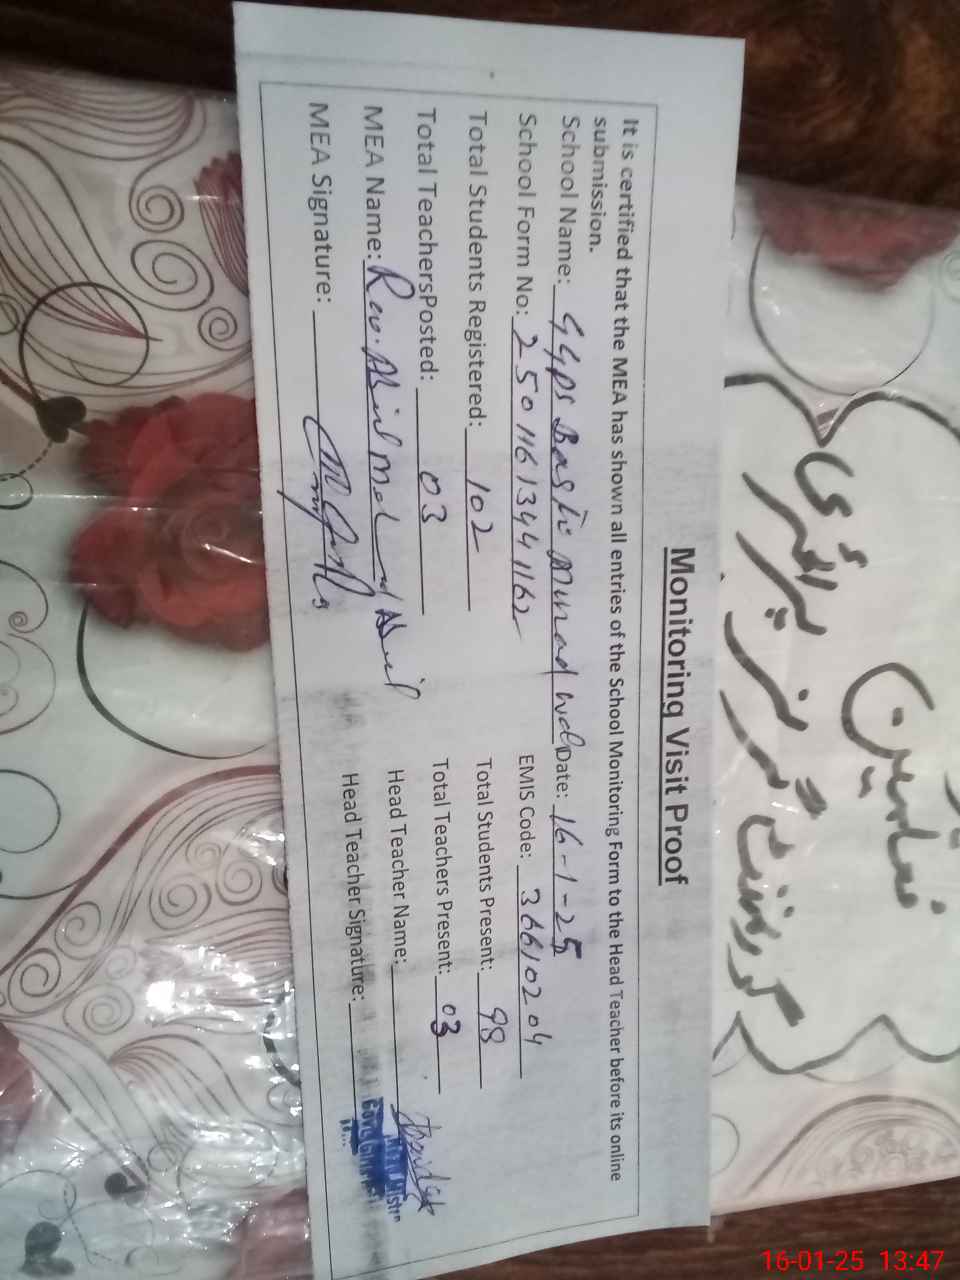 Monitoring Visit Proof
It is certified that the MEA has shown all entries of the School Monitoring Form to the Head Teacher before its online
submission.
School Name: GGPS Basti Murad Date: 16-1-25
School Form No: 25011613441162 EMIS Code: 36610204
Total Students Registered: 102 Total Students Present: 98
Total TeachersPosted: 03 Total Teachers Present: 03
MEA Name: Head Teacher Name:
MEA Signature: Head Teacher Signature:
گورنمنٹ گرلز پرائمری
16-01-25 13:47